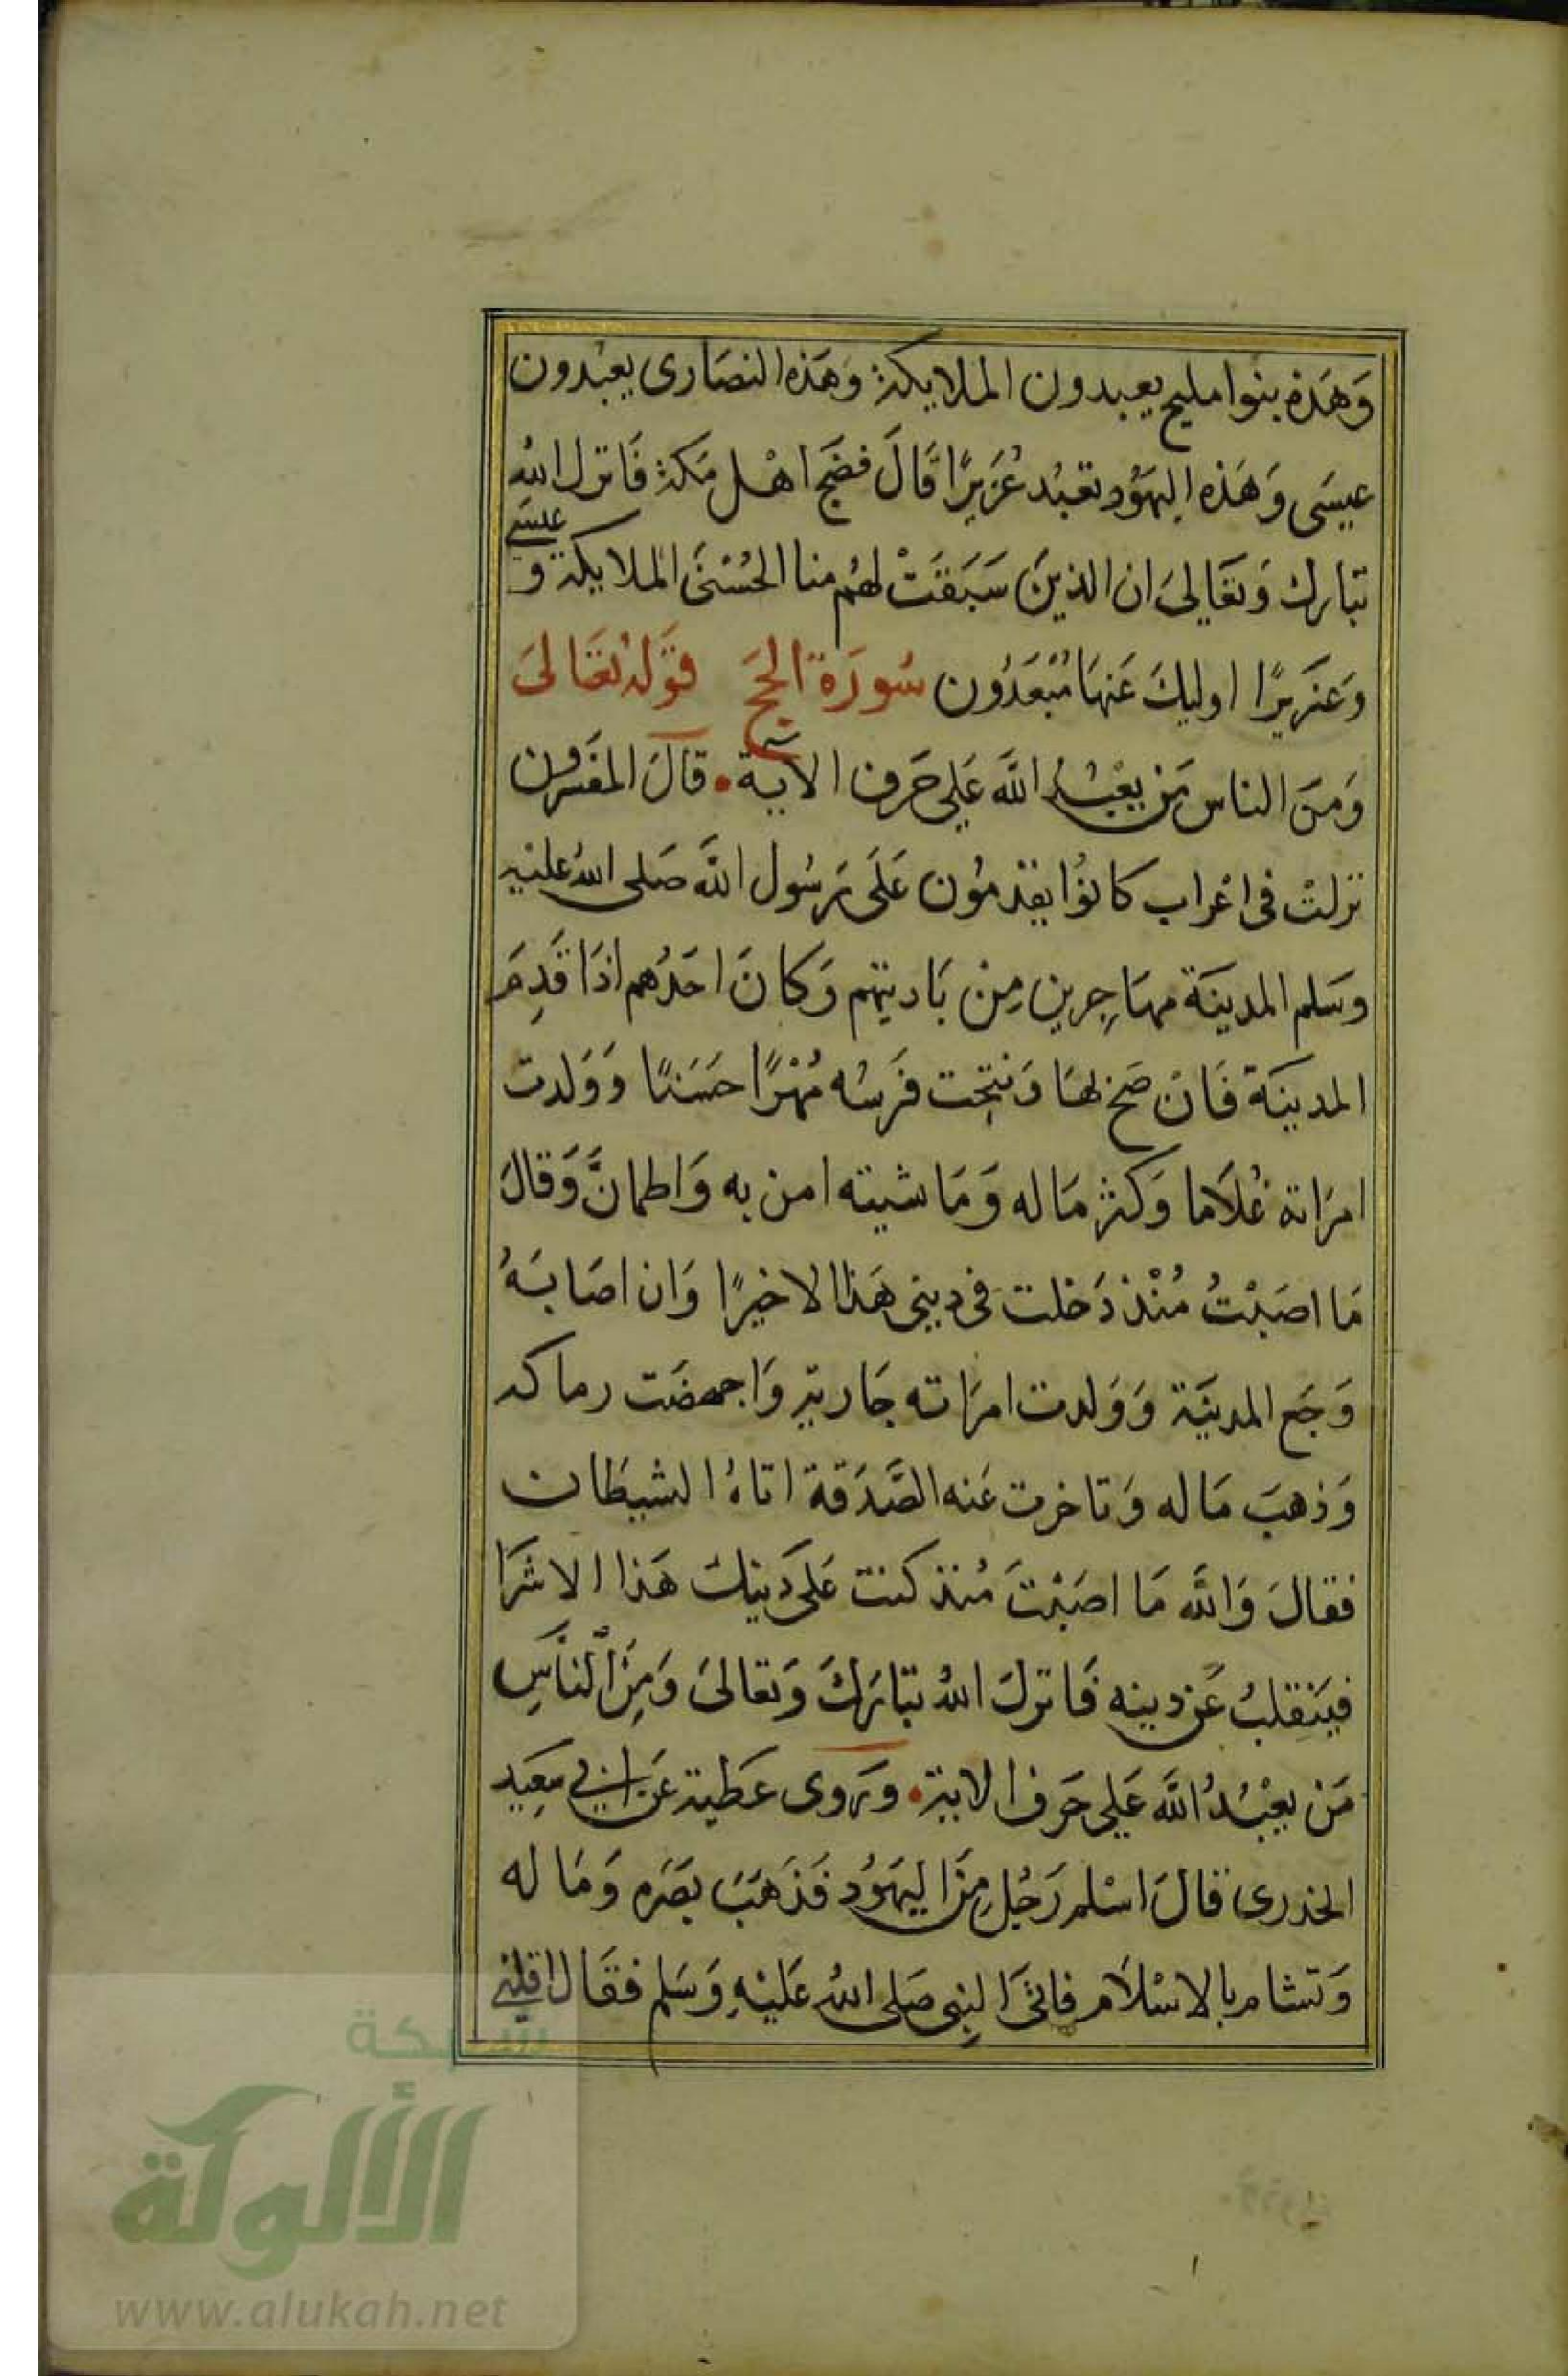 وَهَذِه بنوا مليح يعبدون الملايكة وَهَذِه النصَارى يعبْدون
عيسَى وَهَذه اليَهُود تعبُد عُزَيرًا قَالَ فضَج اهْل مَكة فَانزل الله
تبَارك وَتعَالىَ ان الذينَ سَبَقَتْ لهُم منا الحُسْنىَ الملايكة وَ عيسَى
وَعزَيرًا اوليكَ عَنهَا مُبْعَدُون سُورَة الحَج قوَله تعَالىَ
وَمنَ الناس مَن يعْبُد اللَّه عَلى حَرف الآية قالَ المفسرون
نزلتْ فى اعْراب كانوُا يقدمُون عَلَى رَسُول اللَّه صَلى الله عليْه
وسَلم المدينَة مهَاجِرين مِنْ بَاديتهم وَكانَ احَدُهم اذَا قَدِمَ
المدينَة فَانْ صَح بهَا وَنتجت فَرسُه مُهْرًا حَسَنًا وَوَلدت
امرَاتة غُلاَما وَكثر مَا له وَمَاشيته امن به وَاطمانَّ وَقالَ
مَا اصَبْتُ مُنْذ دَخلت فى دينى هَذا الا خيرًا وَان اصَابَهُ
وَجَع المدينَة وَوَلدت امرَاته جَارية وَاجهضَت رماكه
وَذهبَ مَا له وَتاخرت عَنه الصَّدَقة اتاهُ الشيطان
فقالَ وَاللَّه مَا اصَبْتَ مُنذ كنت عَلى دَينك هَذا الا شرَا
فيَنقِلبُ عَن دينه فَانزلَ اللهُ تبَارَكَ وَتعَالىَ وَمِنَ النَّاسِ
مَن يعْبُدُ اللَّه عَلى حَرف الاية وَرَوى عَطية عَن ابي سَعِيد
الخدرى قالَ اسْلم رَجُل مِنَ اليَهوُد فَذَهَبَ بصَره وَمَا له
وَتشام بالاسْلاَم فاتىَ النبى صَلى اللهُ عَليْهِ وَسَلم فقَال اقلني
شبكة
الألوكة
www.alukah.net